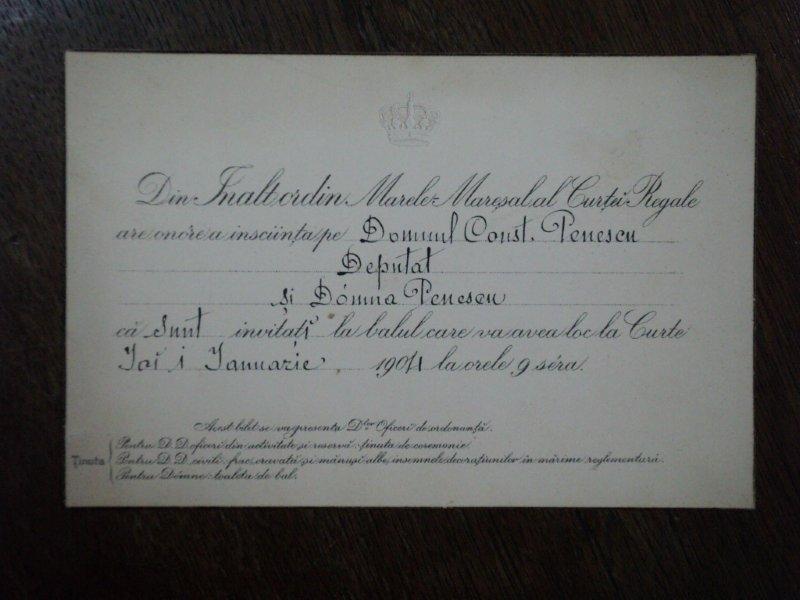 Din Inalt ordin Marele Mareșal al Curței Regale
are onóre a insciința pe Domnul Const. Penescu
Deputat
și Dómna Penescu
că sunt invitați la balul care va avea loc la Curte
Joi 1 Ianuarie 1904 la orele 9 séra.
Acest bilet se va presenta D-lor Oficeri de ordonanță.
Pentru D. D. oficeri din activitate și reservă: ținuta de ceremonie
Ținuta Pentru D. D. civili frac, cravată și mănuși albe, insemnele decorațiunilor in mărime reglementară.
Pentru Dómne toaleta de bal.